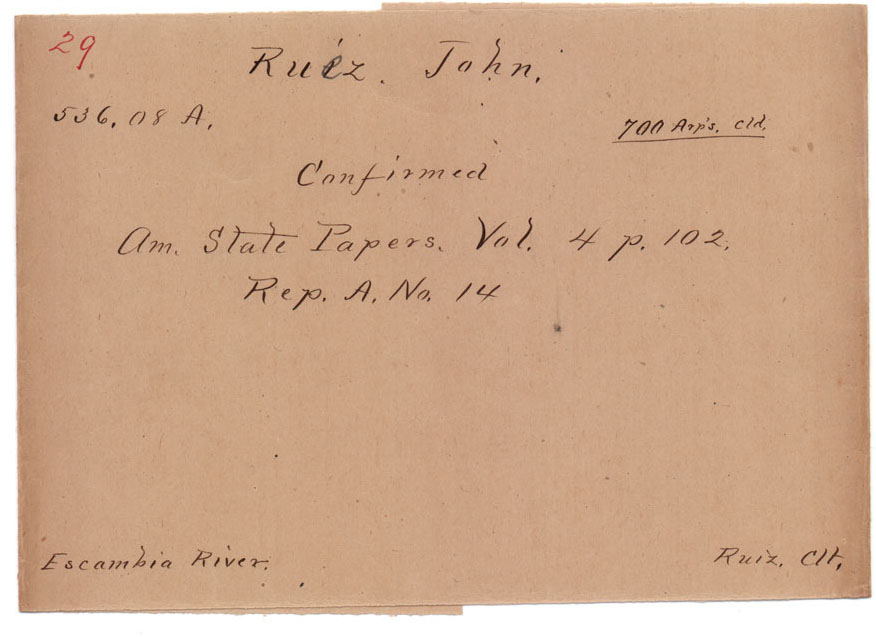 29
Ruiz. John.
536.08 A.
700 Arp's. Cld.
Confirmed
Am. State Papers. Vol. 4 p. 102.
Rep. A. No. 14
Escambia River.
Ruiz. Clt.